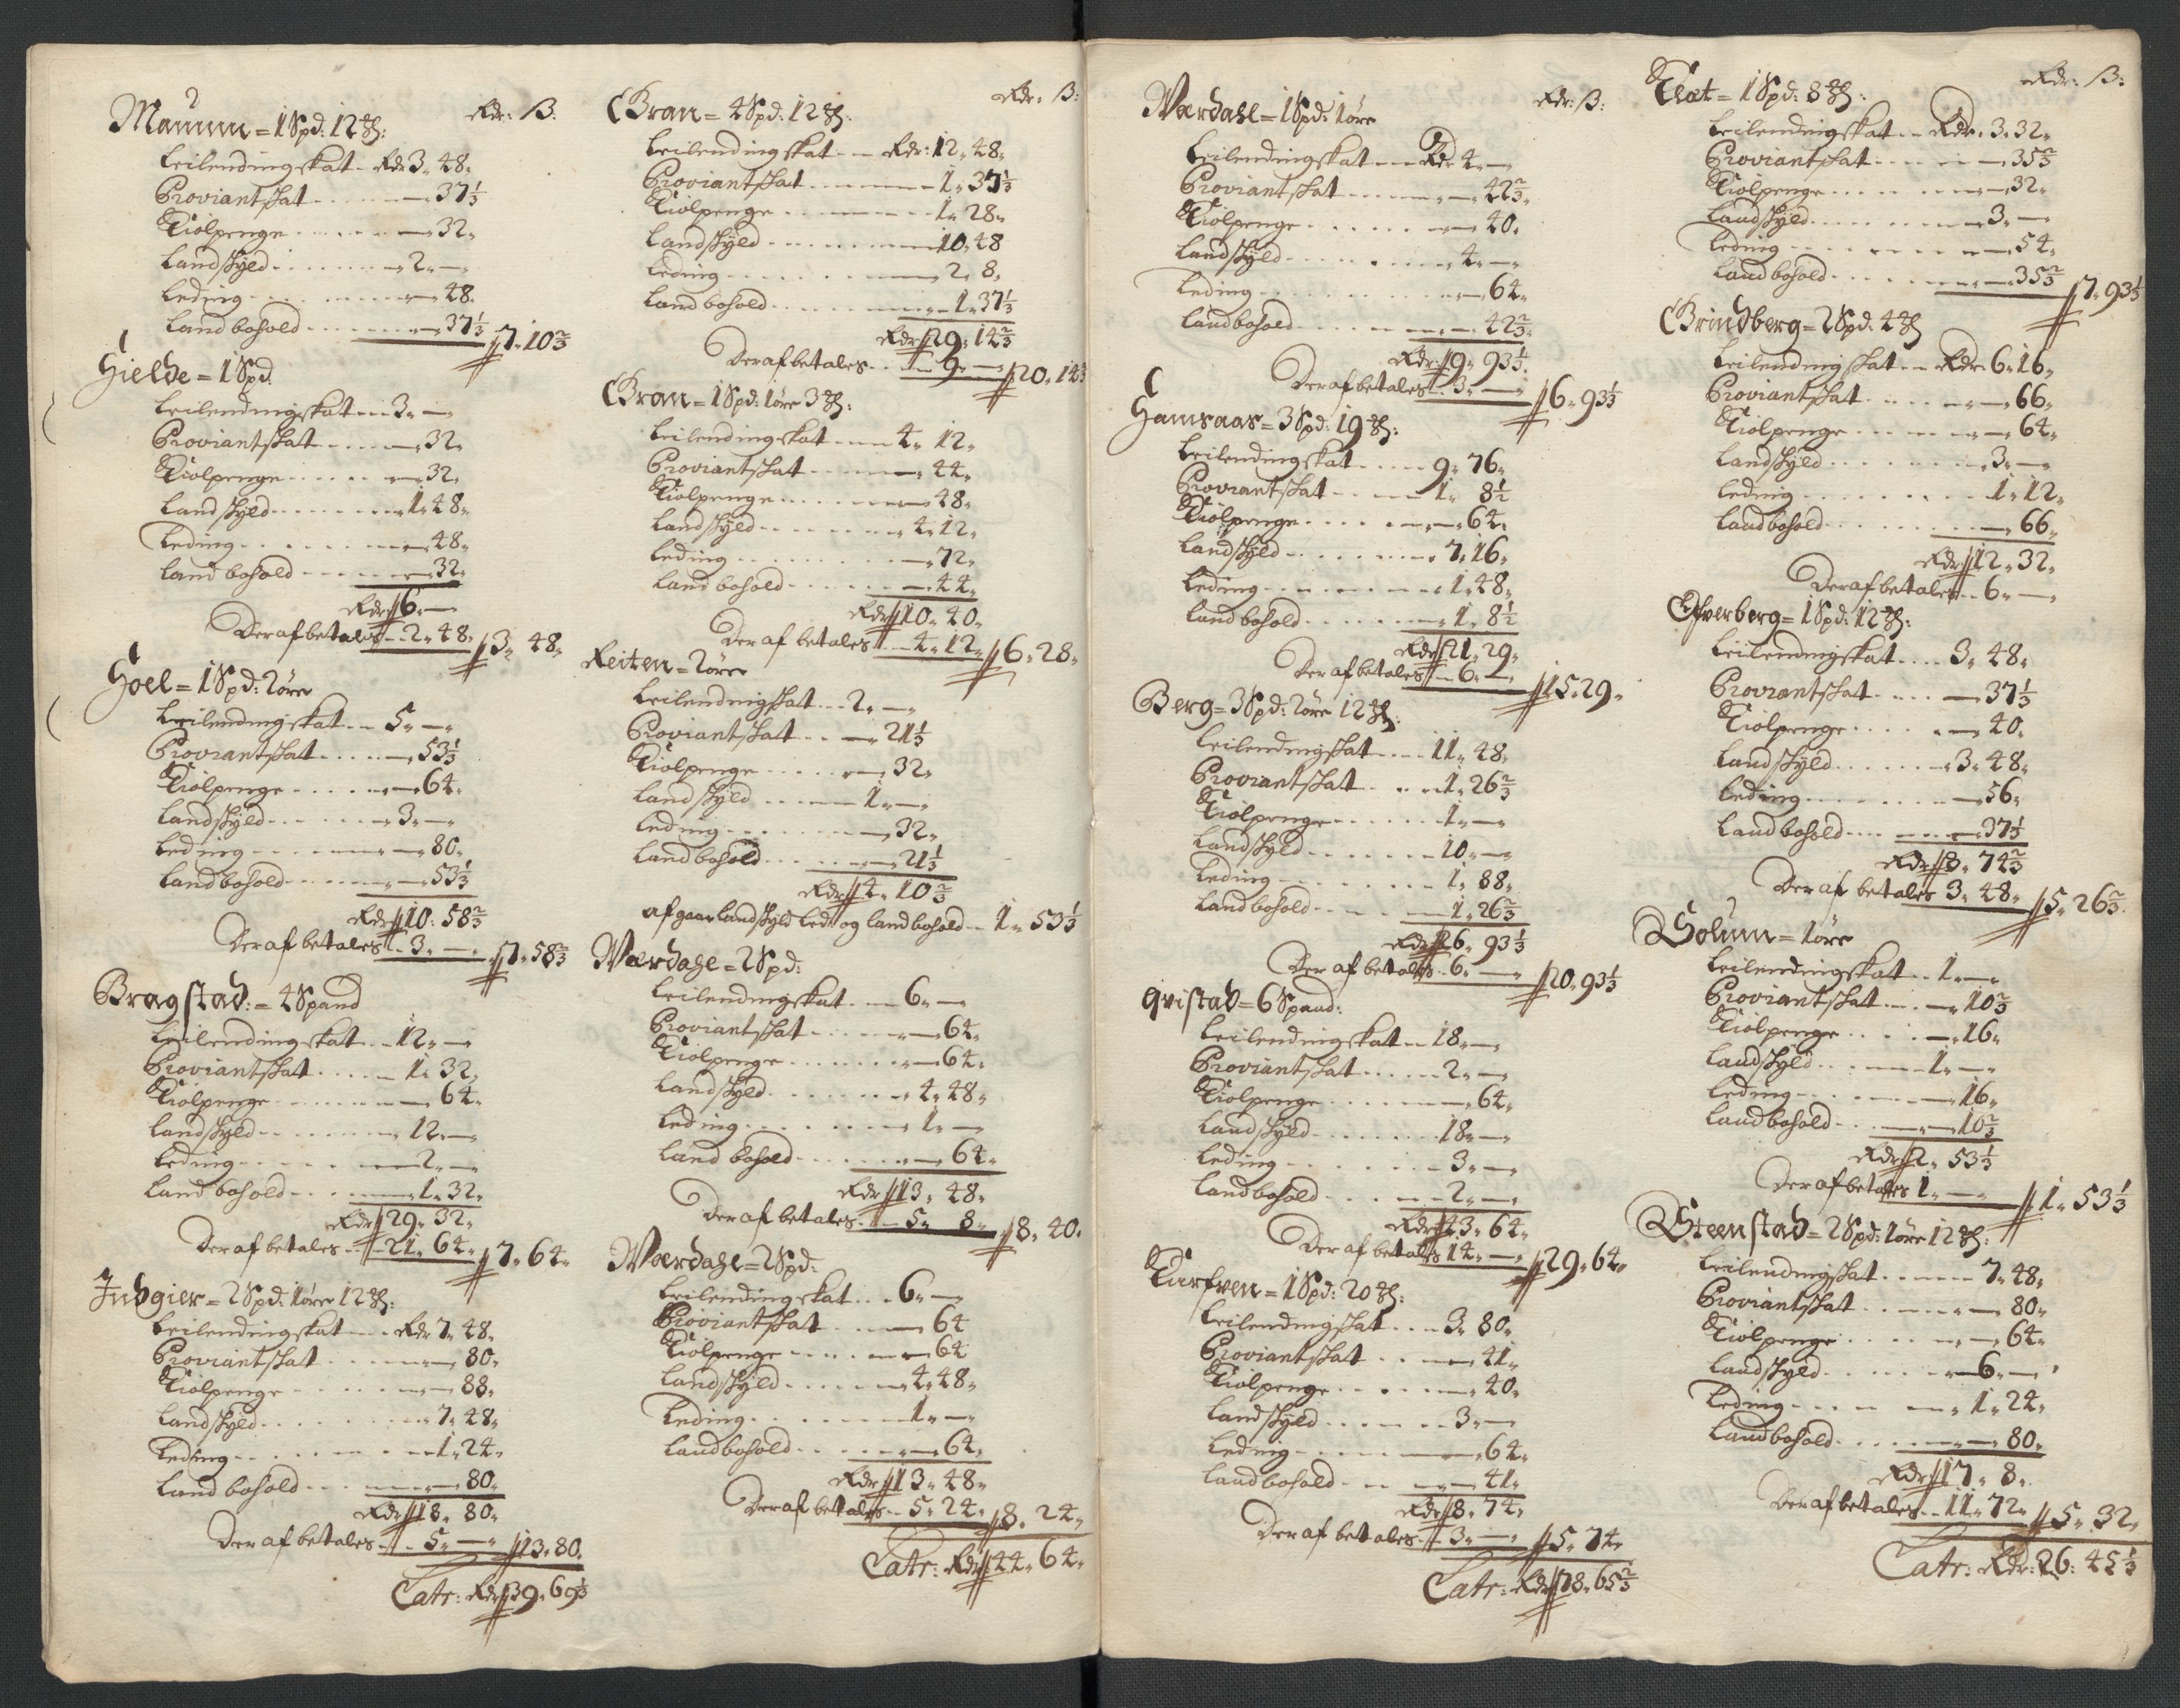 Rdr: ß:
Mamm = 1 Spd: 12 ℔:
Leilendingskat - Rdr 3. 48.
Proviantskat - - - 37⅓
Tiolpenge - - - 32.
Landskÿld - - - 2. —
Leding - - - 48.
Landbohold - - - 37⅓ 7. 10⅔
Hielde = 1 Spd.
Leilendingskat - - 3. —
Proviantskat - - - 32.
Tiolpenge - - - 32.
Landskÿld - - - 1. 48.
Leding - - - 48.
Landbohold - - - 32.
Rdr 6. —
Deraf betales - - 2. 48. 3. 48.
Hoel = 1 Spd: 2 øre
Leilendingskat - - 5. —
Proviantskat - - - 53⅓
Tiolpenge - - - 64.
Landskÿld - - - 3. —
Leding - - - 80.
Landbohold - - - 53⅓
Rdr 10. 58⅔
Deraf betales - - 3. — 7. 58⅔
Bragstad: = 4 Spand
Leilendingskat - - 12. —
Proviantskat - - - 1. 32.
Tiolpenge - - - 64.
Landskÿld - - - 12. —
Leding - - - 2. —
Landbohold - - - 1. 32.
Rdr 29. 32.
Deraf betales - - 21. 64. 7. 64.
Indgier = 2 Spd: 1 øre 12 ℔:
Leilendingskat - - Rdr 7. 48.
Proviantskat - - - 80.
Tiolpenge - - - 88.
Landskÿld - - - 7. 48.
Leding - - - 1. 24.
Landbohold - - - 80.
Rdr 18. 80.
Deraf betales - - 5. — 13. 80.
Latr: Rdr 39. 69⅓
Rdr. ß:
Gran = 4 Spd: 12 ℔:
Leilendingskat - - Rdr: 12. 48.
Proviantskat - - - 1. 37⅓
Tiolpenge - - - 1. 28.
Landskÿld - - - 10. 48
Leding - - - 2. 8.
Landbohold - - - 1. 37⅓
Rdr 29. 14⅔
Deraf betales - - 9. — 20. 14⅔
Gran = 1 Spd: 1 øre 3 ℔:
Leilendingskat - - 4. 12.
Proviantskat - - - 44.
Tiolpenge - - - 48.
Landskÿld - - - 4. 12.
Leding - - - 72.
Landbohold - - - 44.
Rdr 10. 40.
Deraf betales - - 4. 12. 6. 28.
Reiten = 2 øre
Leilendingskat - - 2. —
Proviantskat - - 21⅓
Tiolpenge - - - 32.
Landskÿld - - - 1. —
Leding - - - 32.
Landbohold - - - 21⅓
Rdr 4. 10⅔
afgaar Landskÿld Led: og Landbohold - 1. 53⅓
Værdahl = 2 Spd:
Leilendingskat - - 6. —
Proviantskat - - - 64.
Tiolpenge - - - 64.
Landskÿld - - - 4. 48.
Leding - - - 1. —
Landbohold - - - 64.
Rdr 13. 48.
Deraf betales - - 5. 8. 8. 40.
Værdahl = 2 Spd:
Leilendingskat - - 6. —
Proviantskat - - - 64
Tiolpenge - - - 64
Landskÿld - - - 4. 48.
Leding - - - 1. —
Landbohold - - - 64.
Rdr 13. 48.
Deraf betales - - 5. 24. 8. 24.
Latr: Rdr: 44. 64.
Rdr: ß:
Værdahl = 1 Spd: 1 øre
Leilendingskat - - Rdr 4. —
Proviantskat - - - 42⅔.
Tiolpenge - - - 40.
Landskÿld - - - 4. —
Leding - - - 64.
Landbohold - - - 42⅔.
Rdr: 9. 93⅓.
Deraf betales - - 3. — 6. 93⅓
Hamraas = 3 Spd: 19 ℔:
Leilendingskat - - 9. 76.
Proviantskat - - - 1. 8½
Tiolpenge - - - 64.
Landskÿld - - - 7. 16.
Leding - - - 1. 48.
Landbohold - - - 1. 8½
Rdr 21. 29.
Deraf betales - - 6. — 15. 29.
Berg = 3 Spd: 2 øre 12 ℔:
Leilendingskat - - 11. 48.
Proviantskat - - 1. 26⅔
Tiolpenge - - - 1. —
Landskÿld - - - 10. —
Leding - - - 1. 88.
Landbohold - - - 1. 26⅔
Rdr 26. 93⅓
Deraf betales - - 6. — 20. 93⅓
Qvistad = 6 Spand:
Leilendingskat - 18. —
Proviantskat - - - 2. —
Tiolpenge - - - 64.
Landskÿld - - - 18. —
Leding - - - 3. —
Landbohold - - - 2. —
Rdr 43. 64.
Deraf betales 14. — 29. 64.
Tarfven = 1 Spd: 20 ℔:
Leilendingskat - - 3. 80.
Proviantskat - - - 41.
Tiolpenge - - - 40.
Landskÿld - - - 3. —
Leding - - - 64.
Landbohold - - - 41.
Rdr 8. 74.
Deraf betales - - 3. — 5. 74.
Latr: Rdr 78. 65⅔
Rdr: ß:
Tlæt = 1 Spd: 8 ℔:
Leilendingskat - - Rdr. 3. 32.
Proviantskat - - - 35⅔
Tiolpenge - - - 32.
Landskÿld - - - 3. —
Leding - - - 54.
Landbohold - - - 35⅔ 7. 93⅓
Grindberg = 2 Spd: 4 ℔
Leilendingskat - - Rdr. 6. 16.
Proviantskat - - - 66.
Tiolpenge - - - 64.
Landskÿld - - - 3. —
Leding - - - 1. 12.
Landbohold - - - 66.
Rdr 12. 32.
Deraf betales - - 6. —
Ofverberg = 1 Spd: 12 ℔:
Leilendingskat - - 3. 48.
Proviantskat - - - 37⅓
Tiolpenge - - - 40.
Landskÿld - - - 3. 48.
Leding - - - 56.
Landbohold - - - 37⅓
Rdr 8. 74⅔
Deraf betales 3. 48. 5. 26⅔.
Solum = 1 øre
Leilendingskat - - 1. —
Proviantskat - - - 10⅔
Tiolpenge - - - 16.
Landskÿld - - - 1. —
Leding - - - 16.
Landbohold - - - 10⅔
Rdr 2. 53⅓
Deraf betales 1. — 1. 53⅓
Steenstad = 2 Spd: 1 øre 12 ℔:
Leilendingskat - - 7. 48.
Proviantskat - - - 80.
Tiolpenge - - - 64.
Landskÿld - - - 6. —
Leding - - - 1. 24.
Landbohold - - - 80.
Rdr 17. 8.
Deraf betales - - 11. 72. 5. 32.
Latr: Rdr: 26. 45⅓